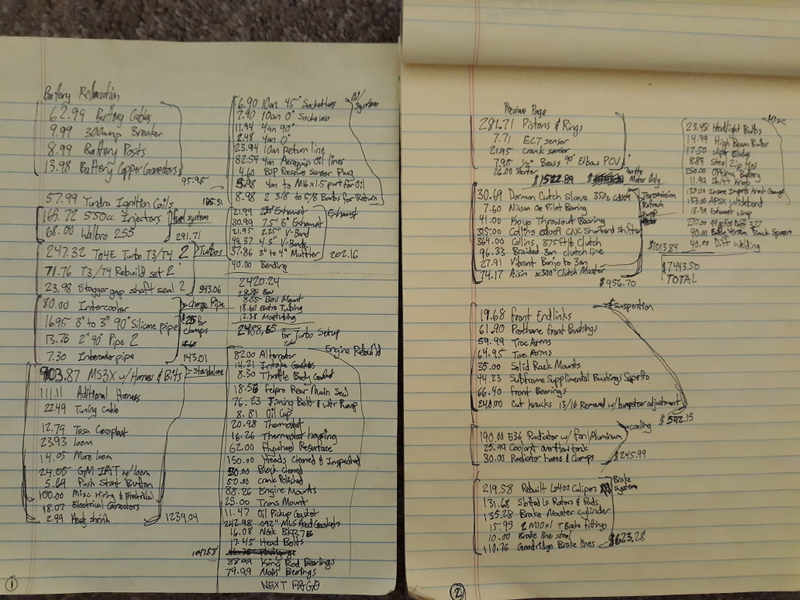 Battery Relocation
62.99 Battery Cables
9.99 300amp Breaker
8.99 Battery Posts
13.98 Battery Copper Connectors
95.95
57.99 Tundra Ignition Coils
165.72 550cc Injectors
Fuel system
68.00 Walbro 255
291.71
247.32 T04E Turbo T3/T4 2
Turbos
71.76 T3/T4 Rebuild set 2
23.98 Stagger gap shaft seal 2
343.06
80.00 Intercooler
Charge Pipe
1695 3" to 3" 90° Silicone pipe
$25 for clamps
13.76 2" 90° Pipe 2
7.30 Intercooler pipe
143.01
903.87 MS3X w/ Harness & Bits
Standalone
111.11 Aditional Harness
22.49 Tuning Cable
12.79 Tesa
23.93 loom
14.05 More loom
24.05 GM IAT w/ loom
5.69 Push Start Button
100.00 misc Wiring & Electrical
18.07 Electrical Connectors
2.99 Heat shrink
1239.04
1
6.90 10an 45°
7.90 10an 0°
11.94 4an 90°
2.48 4an 0°
23.94 10an Return line
82.59 4an Aeroquip Oil lines
4.60 Reserve Sensor Plug
5.98 4an to M16x1.5 port for Oil
8.98 2 3/8 to 5/8 Bulbs for Return
21.99 Exhaust
Exhaust
30.99 7.5" 6" Exhaust
21.95 2.25" V-Band
49.37 4.5" V-Bands
57.86 3" to 4" Muffler
202.16
40.00 Bending
2420.24
8.55 BOV Mount
18.60 Extra Tubing
2458.65 for Turbo Setup
Engine Rebuild
82.00 Alternator
14.21 Intake Gaskets
8.30 Throttle Body Gasket
18.56 Felpro Rear Main Seal
76.23 Timing Belt & Wtr Pump
8.81 Oil Cap
20.98 Thermostat
16.26 Thermostat housing
62.00 Flywheel Resurface
150.00 Heads Cleaned & Inspected
50.00 Block cleaned
50.00 Crank Polished
88.26 Engine Mounts
25.00 Trans Mount
11.47 Oil Pickup Gasket
242.98 .092" MLS Head Gaskets
16.08 NGK BKR7E
17.45 Head Bolts
88.99 King Rod Bearings
79.99 Main Bearings
NEXT PAGE
Previous Page
281.71 Pistons & Rings
7.71 ECT sensor
21.95 Crank sensor
7.95 1/2" Brass 90° Elbow PCV
26.00 Starter
$1522.89
30.69 Dorman Clutch Slave
Transmission
7.60 Nissan Oe Pilot Bearing
41.00 Koyo Throwout Bearing
315.00 Collins CNC Shortend Shifter
364.00 Collins 375ft/lb clutch
96.33 Braided 3an clutch line
27.91 Vibrant Banjo to 3an
74.17 Aisin Clutch Master
$956.70
Suspention
19.68 Front Endlinks
61.90 Prothane Front Bushings
59.99 True Arms
64.95 Toe Arms
35.00 Solid Rack Mounts
44.23 Subframe Supplimental Bushings
66.40 Front Bearings
240.00 Cut knucks 13/16 Removed w/ bumpsteer adjustment
$592.15
Cooling
190.00 E36 Radiator w/ Fan/Aluminum
25.99 Coolant overflow tank
30.00 Radiator hoses & Clamps
$245.99
Brake System
219.58 Rebuilt Calipers
131.68 Slotted Rotors & Pads
135.28 Brake Master cylinder
15.95 2 M10x1 T Brake fittings
10.00 Brake line
110.76 Goodridge Brake lines
$623.28
Misc
23.48 Headlight Bulbs
14.99 High Beam Bulbs
17.50
8.89 Steel Zip Ties
50.00 Battery
11.98 Shift knob
Gauge
Wideband
18.98 Exhaust wrap
40.00 Diff Welding
$1013.84
$7443.50
TOTAL
2